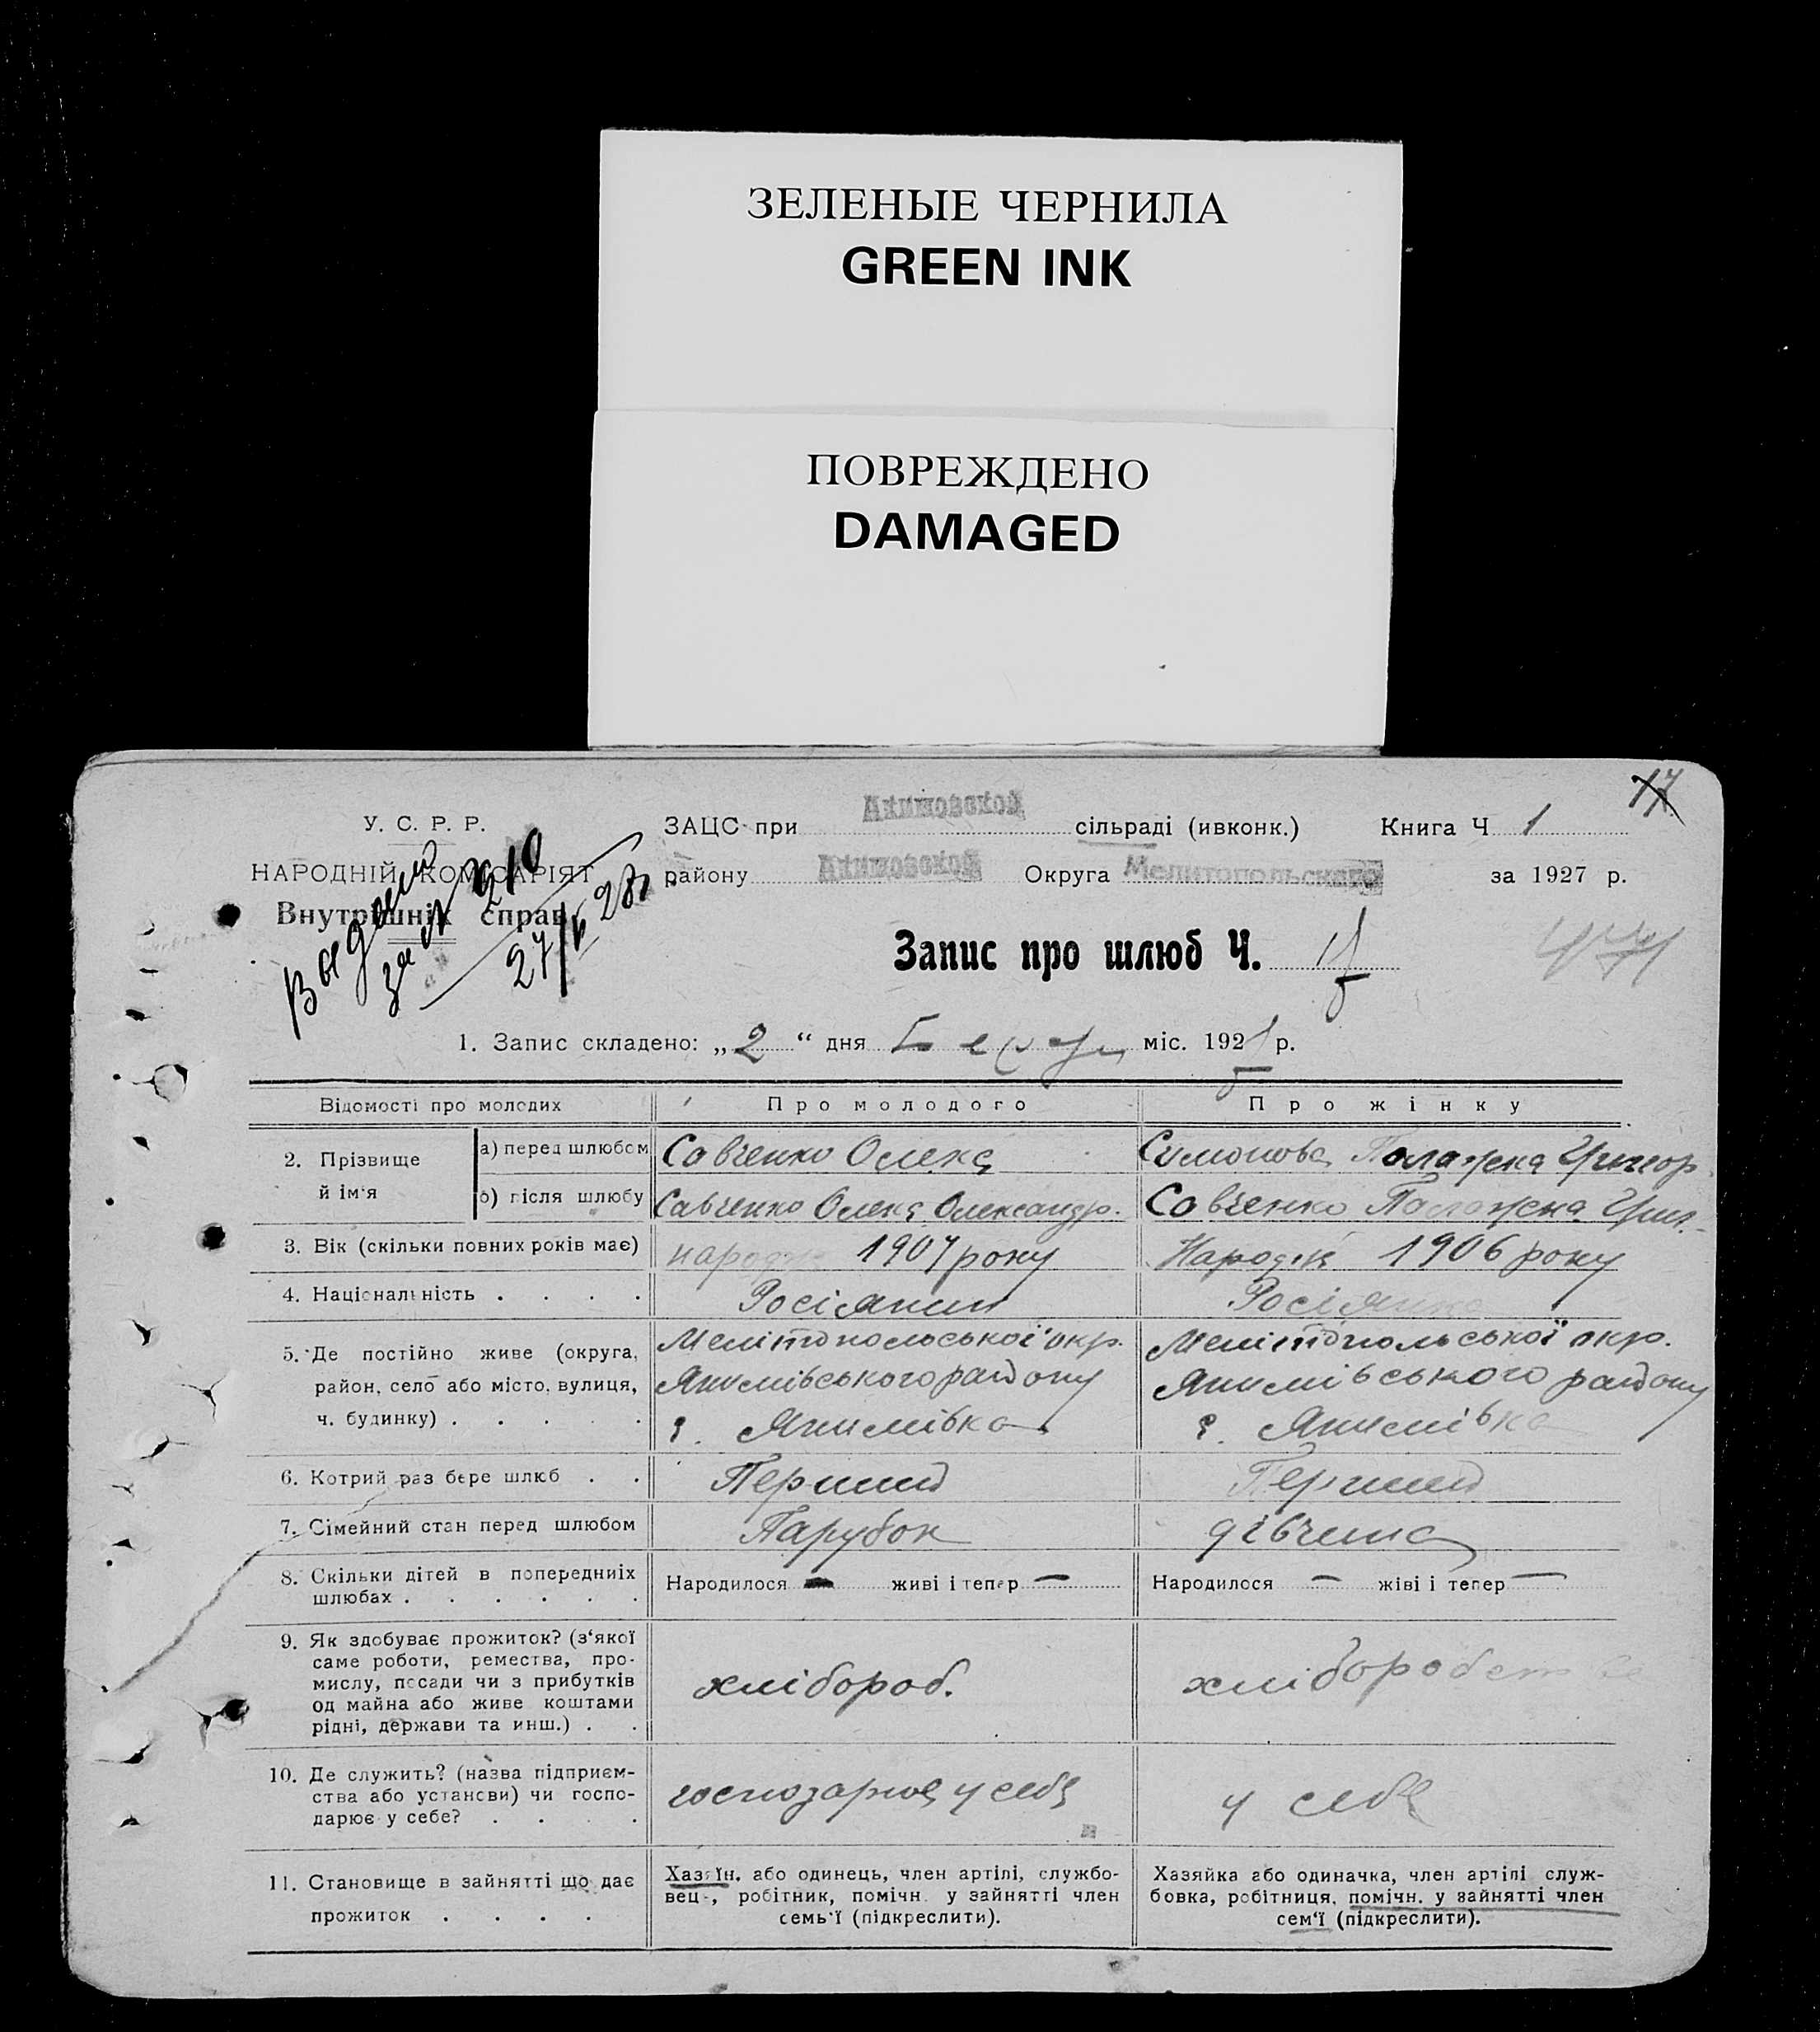 ЗЕЛЕНЫЕ ЧЕРНИЛА
GREEN INK
ПОВРЕЖДЕНО
DAMAGED
У. С. Р. Р.
НАРОДНІЙ КОМІСАРІЯТ
Внутрішніх справ
ЗАЦС при Акимовской сільраді (ивконк.) Книга Ч 1
району Акимовской Округа Мелитопольского за 1927 р.
27
Запис про шлюб Ч.
1. Запис складено: „2“ дня міс. 192 р.
Відомості про молодих Про молодого Про жінку
2. Прізвище й ім'я а) перед шлюбом Савченко Олекса Симонова Палажка Григор.
б) після шлюбу Савченко Олекса Олександр. Савченко Палажка Григ.
3. Вік (скільки повних років має) народ 1907 року Народж 1906 року
4. Національність . . . . Росіянин Росіянка
5. Де постійно живе (округа, Мелітопольської окр. Мелітопольської окр.
район, село або місто, вулиця, Якимівського району Якимівського району
ч. будинку) . . . . . с. Якимівка с. Якимівка
6. Котрий раз бере шлюб . . Перший Перший
7. Сімейний стан перед шлюбом Парубок дівчина
8. Скільки дітей в попередніх Народилося — живі і тепер — Народилося — жіві і тепер —
шлюбах . . . . . .
9. Як здобуває прожиток? (з'якої
саме роботи, ремества, про-
мислу, посади чи з прибутків хлібороб. хлібороб
од майна або живе коштами
рідні, держави та инш.) . .
10. Де служить? (назва підприєм-
ства або установи) чи госпо- господарює у себе у себе
дарює у себе? . . . .
11. Становище в зайнятті що дає Хазяїн, або одинець, член артілі, службо- Хазяйка або одиначка, член артілі служ-
прожиток . . . . вець, робітник, помічн. у зайнятті член бовка, робітниця, помічн. у зайнятті член
семь'ї (підкреслити). сем'ї (підкреслити).